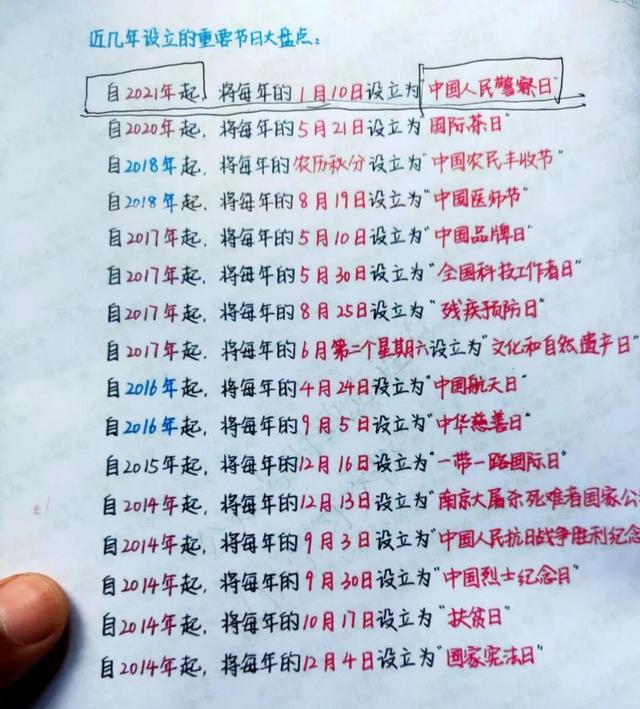 近几年设立的重要节日大盘点:
自2021年起,将每年的1月10日设立为"中国人民警察日"
自2020年起,将每年的5月21日设立为"国际茶日"
自2018年起,将每年的农历秋分设立为"中国农民丰收节"
自2018年起,将每年的8月19日设立为"中国医师节"
自2017年起,将每年的5月10日设立为"中国品牌日"
自2017年起,将每年的5月30日设立为"全国科技工作者日"
自2017年起,将每年的8月25日设立为"残疾预防日"
自2017年起,将每年的6月第二个星期六设立为"文化和自然遗产日"
自2016年起,将每年的4月24日设立为"中国航天日"
自2016年起,将每年的9月5日设立为"中华慈善日"
自2015年起,将每年的12月16日设立为"一带一路国际日"
自2014年起,将每年的12月13日设立为"南京大屠杀死难者国家公
自2014年起,将每年的9月3日设立为"中国人民抗日战争胜利纪念
自2014年起,将每年的9月30日设立为"中国烈士纪念日"
自2014年起,将每年的10月17日设立为"扶贫日"
自2014年起,将每年的12月4日设立为"国家宪法日"